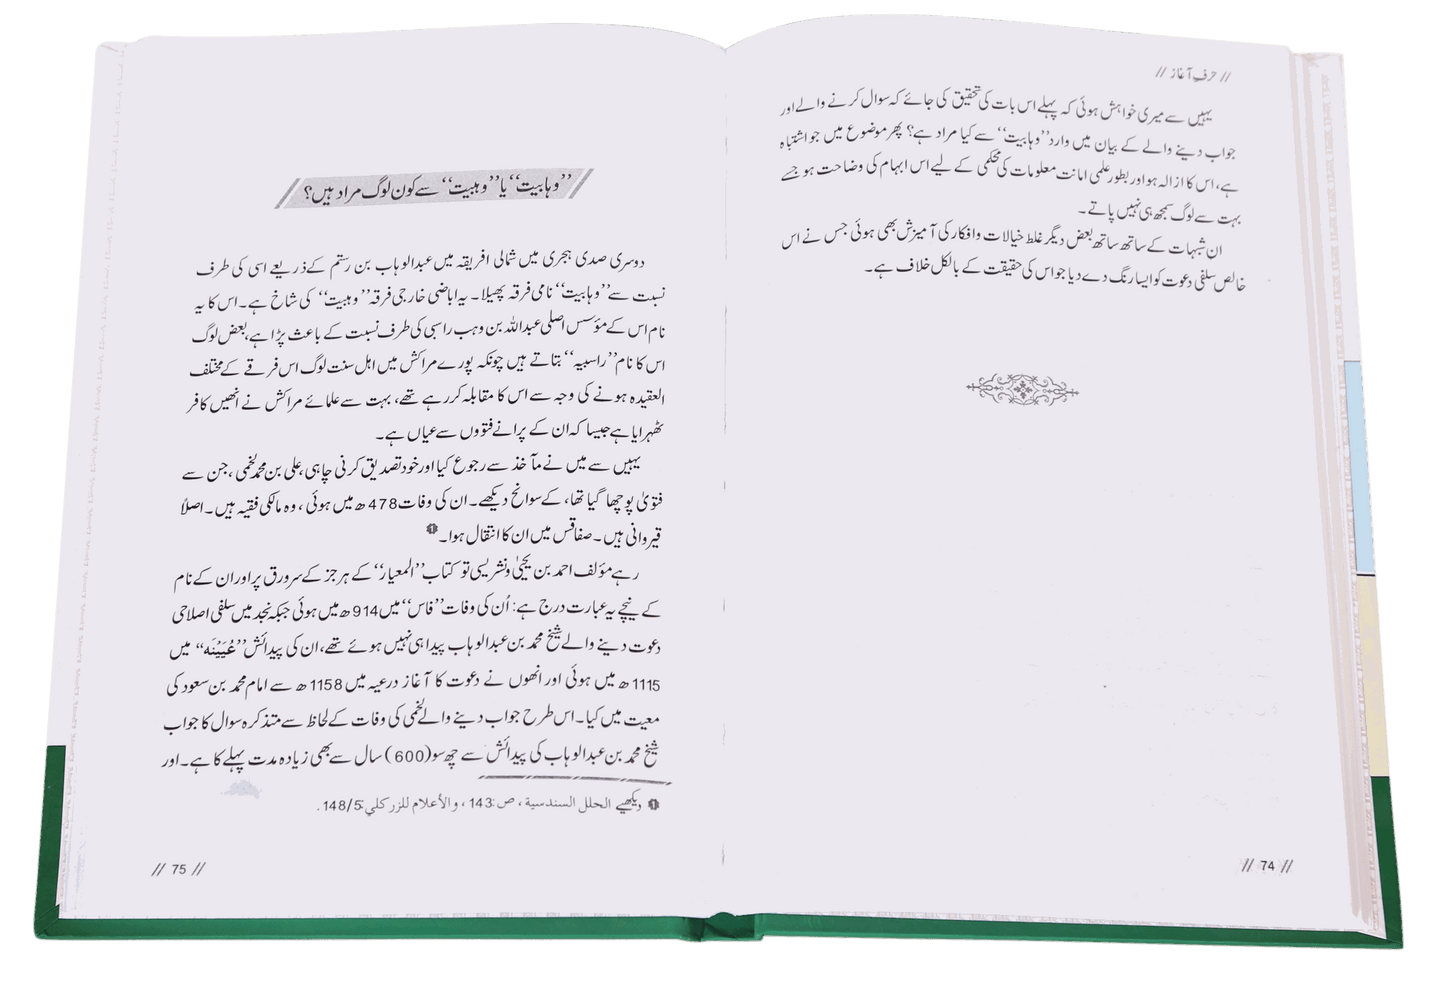 // حرفِ آغاز //
یہیں سے میری خواہش ہوئی کہ پہلے اس بات کی تحقیق کی جائے کہ سوال کرنے والے اور
جواب دینے والے کے بیان میں وارد ’’وہابیت‘‘ سے کیا مراد ہے؟ پھر موضوع میں جو اشتباہ
ہے، اس کا ازالہ ہو اور بطور علمی امانت معلومات کی محکمی کے لیے اس ابہام کی وضاحت ہو جسے
بہت سے لوگ سمجھ ہی نہیں پاتے۔
ان شبہات کے ساتھ ساتھ بعض دیگر غلط خیالات وافکار کی آمیزش بھی ہوئی جس نے اس
خالص سلفی دعوت کو ایسا رنگ دے دیا جو اس کی حقیقت کے بالکل خلاف ہے۔
// 74 //
’’وہابیت‘‘ یا ’’وہبیت‘‘ سے کون لوگ مراد ہیں؟
دوسری صدی ہجری میں شمالی افریقہ میں عبدالوہاب بن رستم کے ذریعے اسی کی طرف
نسبت سے ’’وہابیت‘‘ نامی فرقہ پھیلا۔ یہ اباضی خارجی فرقہ ’’وہبیت‘‘ کی شاخ ہے۔ اس کا یہ
نام اس کے مؤسس اصلی عبداللہ بن وہب راسبی کی طرف نسبت کے باعث پڑا ہے، بعض لوگ
اس کا نام ’’راسبیہ‘‘ بتاتے ہیں چونکہ پورے مراکش میں اہل سنت لوگ اس فرقے کے مختلف
العقیدہ ہونے کی وجہ سے اس کا مقابلہ کر رہے تھے، بہت سے علمائے مراکش نے انھیں کافر
ٹھہرایا ہے جیسا کہ ان کے پرانے فتووں سے عیاں ہے۔
یہیں سے میں نے مآخذ سے رجوع کیا اور خود تصدیق کرنی چاہی، علی بن محمد لخمی، جن سے
فتویٰ پوچھا گیا تھا، کے سوانح دیکھے۔ ان کی وفات 478ھ میں ہوئی، وہ مالکی فقیہ ہیں۔ اصلاً
قیروانی ہیں۔ صفاقس میں ان کا انتقال ہوا۔❶
رہے مؤلف احمد بن یحییٰ ونشریسی تو کتاب ’’المعیار‘‘ کے ہر جز کے سرورق پر اور ان کے نام
کے نیچے یہ عبارت درج ہے: اُن کی وفات ’’فاس‘‘ میں 914ھ میں ہوئی جبکہ نجد میں سلفی اصلاحی
دعوت دینے والے شیخ محمد بن عبدالوہاب پیدا ہی نہیں ہوئے تھے، ان کی پیدائش ’’عُیَیْنَہ‘‘ میں
1115ھ میں ہوئی اور انھوں نے دعوت کا آغاز درعیہ میں 1158ھ سے امام محمد بن سعود کی
معیت میں کیا۔ اس طرح جواب دینے والے لخمی کی وفات کے لحاظ سے متذکرہ سوال کا جواب
شیخ محمد بن عبدالوہاب کی پیدائش سے چھ سو (600) سال سے بھی زیادہ مدت پہلے کا ہے۔ اور
❶ دیکھیے الحلل السندسية، ص:143، والأعلام للزركلي:148/5.
// 75 //